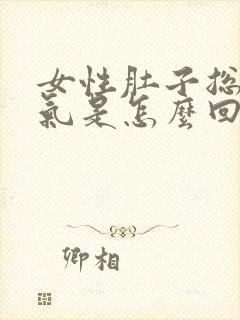 女性肚子总
氣是怎麼回
卿相